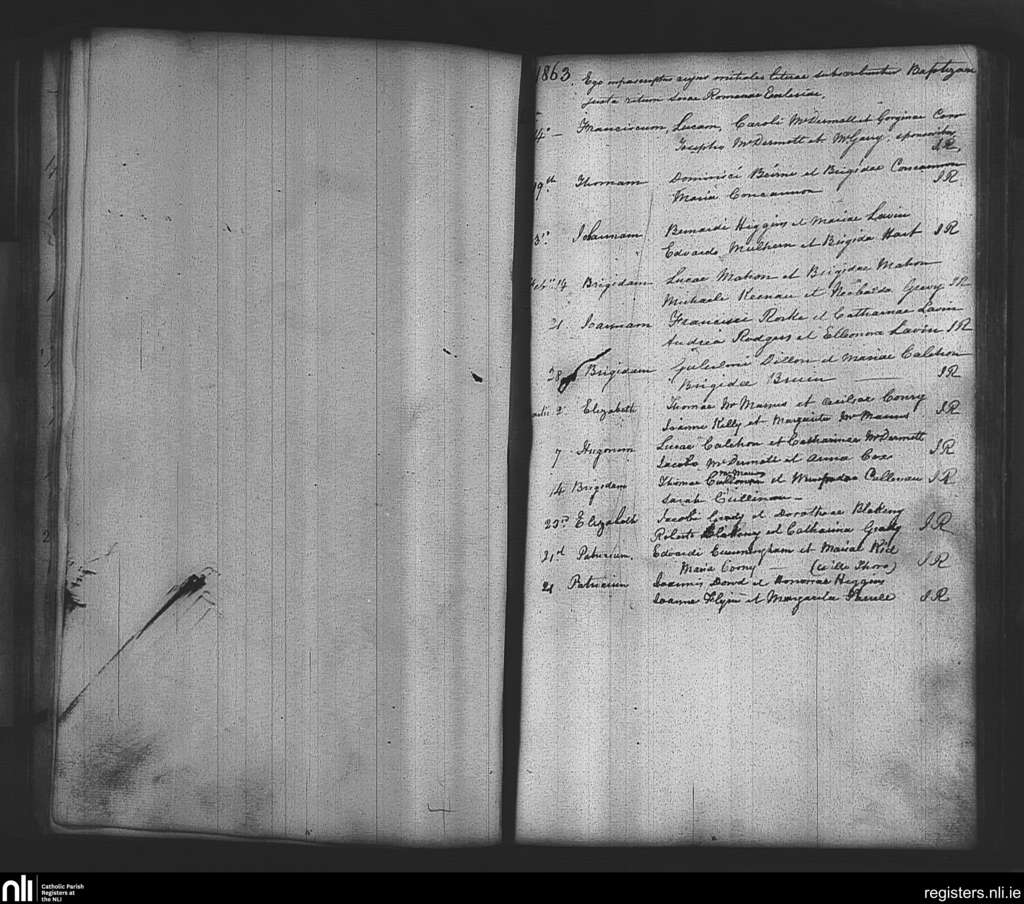 1863. Ego infrascriptus cujus initiales literae subscribuntur Baptizavi
juxta ritum Romanae Ecclesiae.
4º Franciscum, Lucam, Caroli McDermott et Con
Josepho McDermott et McGarry, sponsoribus
J R
19th Thomam Dominici Beirne et Brigidae Concannon
Maria Concannon J R
3º Bernardi Higgins et Mariae Lavin
Edvardo Mulhern et Brigida Hart J R
14 Brigidam Lucae Mahon et Brigidae Mahon
Michaele Keenan et J R
21 Joannam Francisci Rorke et Catharinae Lavin
Andrea Rodgers et Elleonora Lavin J R
28 Brigidam Dillon et Mariae Calehon
Brigidae Bruin J R
2º Elizabeth Thomae McManus et Conry
Joanne Kelly et Margarita McManus J R
7 Hugonem Lucae Calehon et Catharinae McDermott
Jacobo McDermott et Anna Cox J R
McManus
14 Brigidam Thomae et Cullenan J R
Sarah Cullinan
23º Elizabeth Jacobi Grady et Dorotheae Blakeny
Roberto Blakeny et Catharina Grady J R
21st Patricium. Edvardi Cunningham et Mariae
Maria J R
21 Patricium Joannis Dowd et Honorae Higgins
Joanne Flynn et Margarita J R
nli
Catholic Parish
Registers at
the NLI
registers.nli.ie